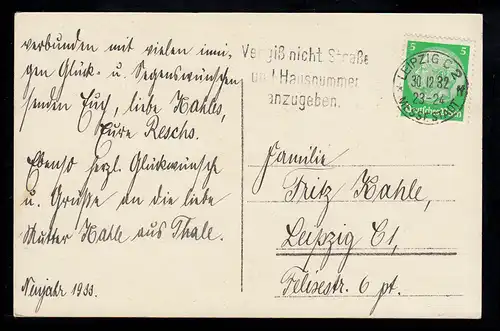 verbunden mit vielen inni-
gen Glück- u. Segenswünschen
senden Euch, liebe Kahles,
Eure Reschs.
Ebenso herzl. Glückwünsche
u. Grüße an die liebe
Mutter Kahle aus Thale.
Neujahr 1933.
Vergiß nicht Straße
und Hausnummer
anzugeben.
LEIPZIG C 2
30.12.32
23-24
MESSESTADT
5 5
5 Deutsches Reich 5
Familie
Fritz Kahle,
Leipzig C1,
Felixestr. 6 pt.